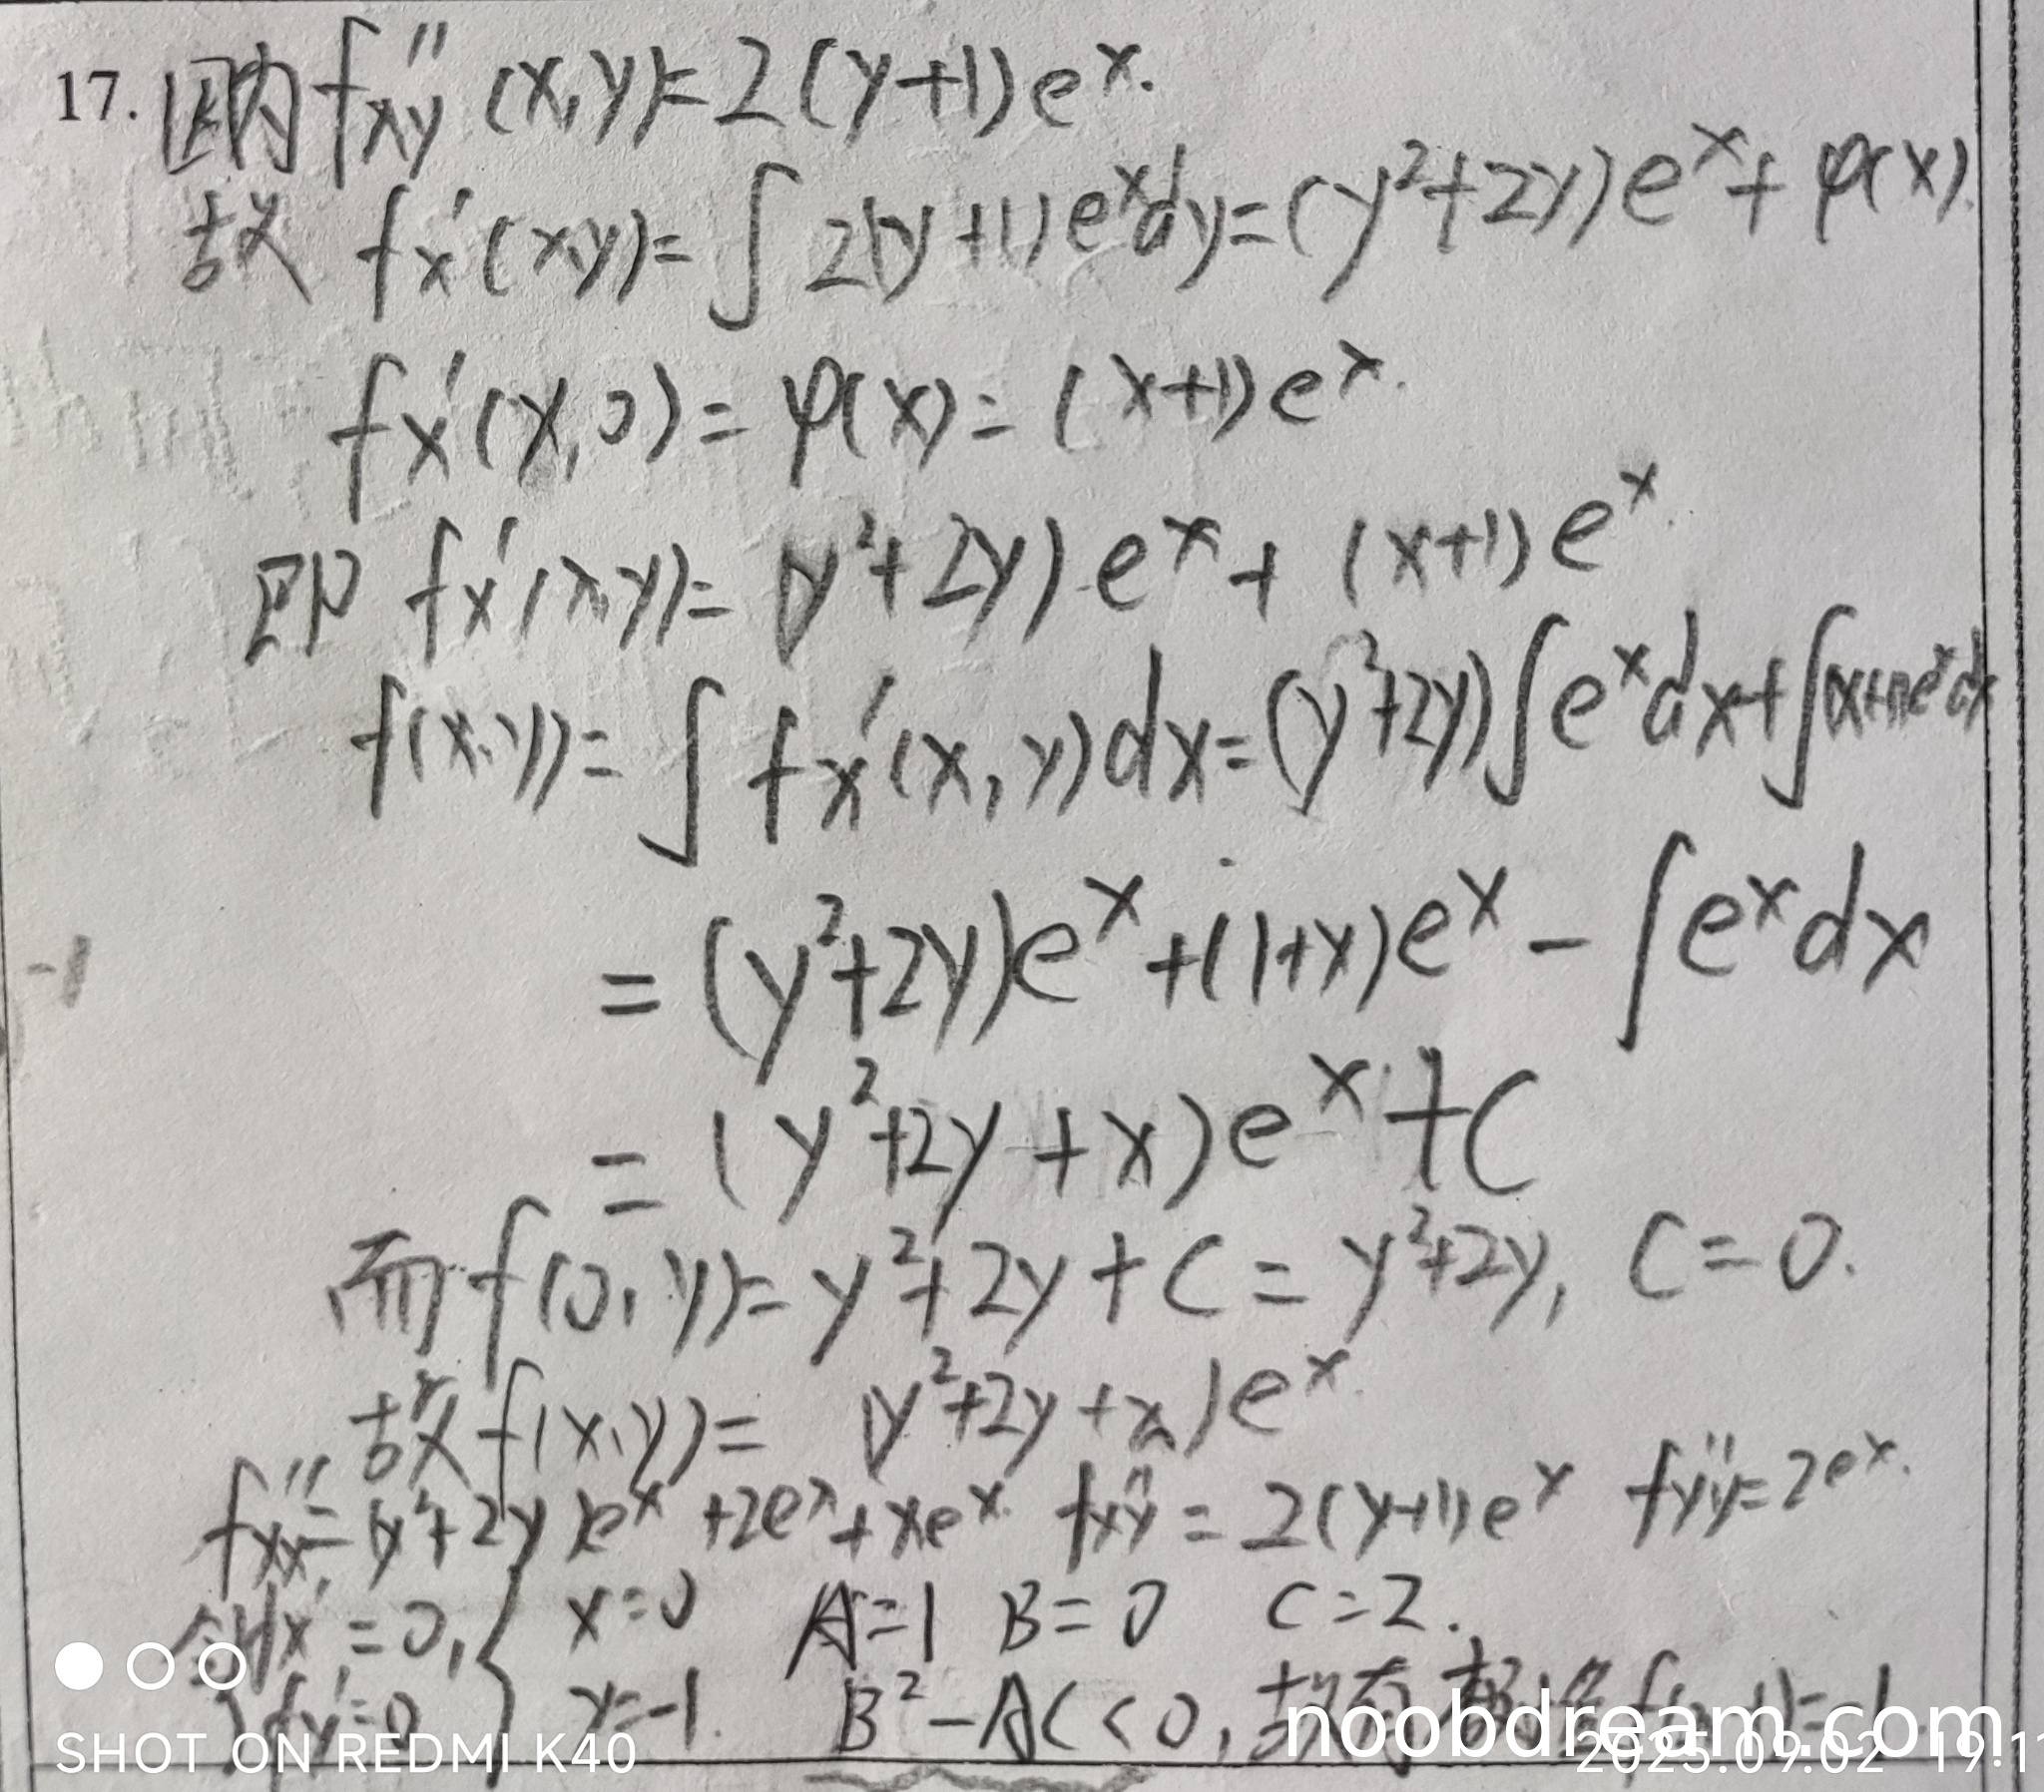 17. 因为 f''xy (x,y)=2(y+1)e^x.
故 fx'(x,y)=∫2(y+1)e^x dy=(y²+2y)e^x+φ(x).
fx'(x,0)=φ(x)=(x+1)e^x.
即 fx'(x,y)=(y²+2y)e^x+(x+1)e^x.
f(x,y)=∫fx'(x,y)dx=(y²+2y)∫e^x dx+∫(x+1)e^x dx
=(y²+2y)e^x+(1+x)e^x-∫e^x dx
-1
=(y²+2y+x)e^x+C
而f(0,y)=y²+2y+C=y²+2y, C=0.
故f(x,y)=(y²+2y+x)e^x.
f''xx=(y²+2y)e^x+2e^x+xe^x. fxy''=2(y+1)e^x fyy''=2e^x.
令{fx'=0, {x=0 A=1 B=0 C=2.
fy'=0 y=-1. B²-AC<0, 故有极小值f(0,-1)=-1
noobdream.com
SHOT ON REDMI K40
2025.09.02 19:1